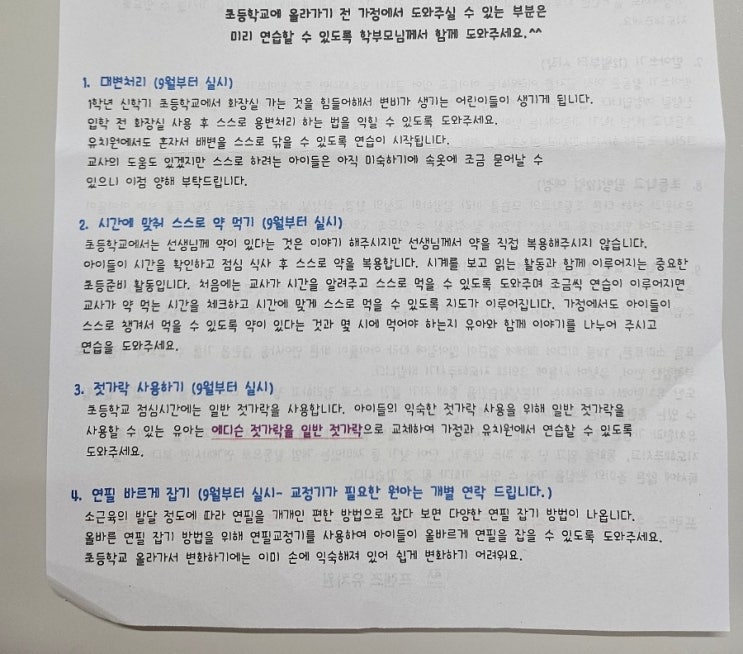 초등학교에 올라가기 전 가정에서 도와주실 수 있는 부분은
미리 연습할 수 있도록 학부모님께서 함께 도와주세요.^^
1. 대변처리 (9월부터 실시)
1학년 신학기 초등학교에서 화장실 가는 것을 힘들어해서 변비가 생기는 어린이들이 생기게 됩니다.
입학 전 화장실 사용 후 스스로 용변처리 하는 법을 익힐 수 있도록 도와주세요.
유치원에서도 혼자서 배변을 스스로 닦을 수 있도록 연습이 시작됩니다.
교사의 도움도 있겠지만 스스로 하려는 아이들은 아직 미숙하기에 속옷에 조금 묻어날 수
있으니 이점 양해 부탁드립니다.
2. 시간에 맞춰 스스로 약 먹기 (9월부터 실시)
초등학교에서는 선생님께 약이 있다는 것은 이야기 해주시지만 선생님께서 약을 직접 복용해주시지 않습니다.
아이들이 시간을 확인하고 점심 식사 후 스스로 약을 복용합니다. 시계를 보고 읽는 활동과 함께 이루어지는 중요한
초등준비 활동입니다. 처음에는 교사가 시간을 알려주고 스스로 먹을 수 있도록 도와주며 조금씩 연습이 이루어지면
교사가 약 먹는 시간을 체크하고 시간에 맞게 스스로 먹을 수 있도록 지도가 이루어집니다. 가정에서도 아이들이
스스로 챙겨서 먹을 수 있도록 약이 있다는 것과 몇 시에 먹어야 하는지 유아와 함께 이야기를 나누어 주시고
연습을 도와주세요.
3. 젓가락 사용하기 (9월부터 실시)
초등학교 점심시간에는 일반 젓가락을 사용합니다. 아이들의 익숙한 젓가락 사용을 위해 일반 젓가락을
사용할 수 있는 유아는 에디슨 젓가락을 일반 젓가락으로 교체하여 가정과 유치원에서 연습할 수 있도록
도와주세요.
4. 연필 바르게 잡기 (9월부터 실시- 교정기가 필요한 원아는 개별 연락 드립니다.)
소근육의 발달 정도에 따라 연필을 개개인 편한 방법으로 잡다 보면 다양한 연필 잡기 방법이 나옵니다.
올바른 연필 잡기 방법을 위해 연필교정기를 사용하여 아이들이 올바르게 연필을 잡을 수 있도록 도와주세요.
초등학교 올라가서 변화하기에는 이미 손에 익숙해져 있어 쉽게 변화하기 어려워요.